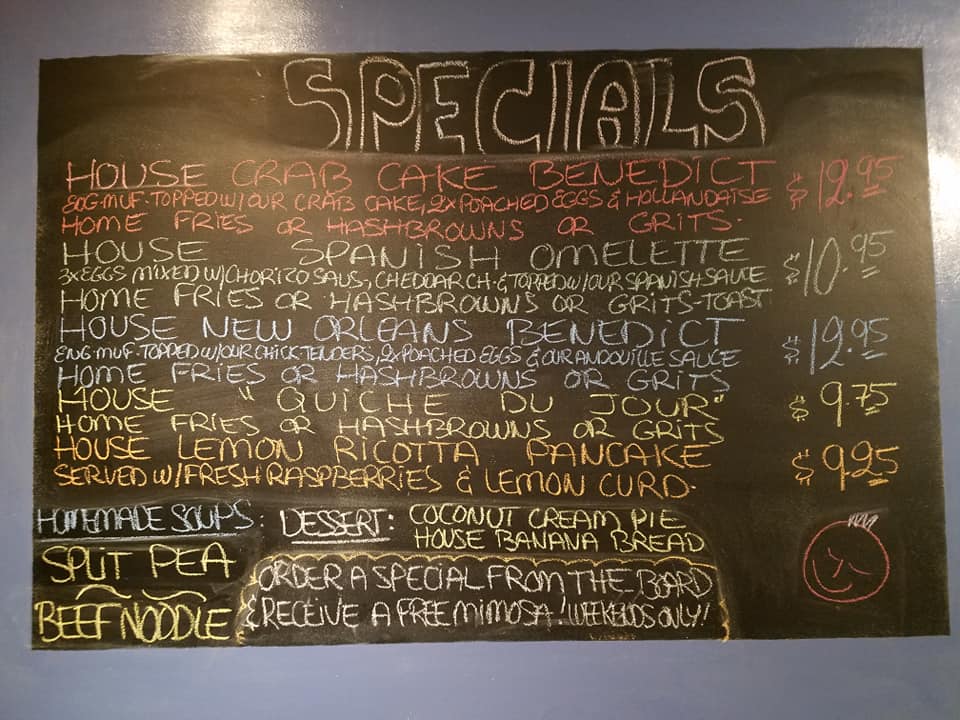 SPECIALS
HOUSE CRAB CAKE BENEDICT $12.95
ENG-MUF-TOPPED W/OUR CRAB CAKE, 2X POACHED EGGS & HOLLANDAISE
HOME FRIES OR HASHBROWNS OR GRITS-
HOUSE SPANISH OMELETTE $10.95
3XEGGS MIXED W/CHORIZO SAUS, CHEDDAR CH & TOPPED W/OUR SPANISH SAUCE
HOME FRIES OR HASHBROWNS OR GRITS-TOAST
HOUSE NEW ORLEANS BENEDICT $12.95
ENG-MUF-TOPPED W/OUR CHICK TENDERS, 2X POACHED EGGS & OUR ANDOUILLE SAUCE
HOME FRIES OR HASHBROWNS OR GRITS
HOUSE "QUICHE DU JOUR" $9.75
HOME FRIES OR HASHBROWNS OR GRITS
HOUSE LEMON RICOTTA PANCAKE $9.25
SERVED W/FRESH RASPBERRIES & LEMON CURD-
HOMEMADE SOUPS:
SPLIT PEA
BEEF NOODLE
DESSERT: COCONUT CREAM PIE
HOUSE BANANA BREAD
ORDER A SPECIAL FROM THE BOARD
& RECEIVE A FREE MIMOSA! WEEKENDS ONLY!